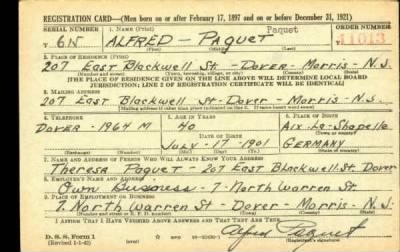 REGISTRATION CARD—(Men born on or after February 17, 1897 and on or before December 31, 1921)
SERIAL NUMBER 1. NAME (Print) Paquet ORDER NUMBER
V 615 ALFRED - PAQUET 11013
2. PLACE OF RESIDENCE (Print)
207 East Blackwell St. - Dover - Morris - N.J.
(Number and street) (Town, township, village, or city) (County) (State)
[THE PLACE OF RESIDENCE GIVEN ON THE LINE ABOVE WILL DETERMINE LOCAL BOARD
JURISDICTION; LINE 2 OF REGISTRATION CERTIFICATE WILL BE IDENTICAL]
3. MAILING ADDRESS
207 East Blackwell St - Dover - Morris - N.J.
[Mailing address if other than place indicated on line 2. If same insert word same]
4. TELEPHONE 5. AGE IN YEARS 6. PLACE OF BIRTH
DOVER - 1964 M 40 Aix-La-Chapelle
DATE OF BIRTH (Town or county)
JULY - 17 - 1901 GERMANY
(Exchange) (Number) (Mo.) (Day) (Yr.) (State or country)
7. NAME AND ADDRESS OF PERSON WHO WILL ALWAYS KNOW YOUR ADDRESS
Theresa Paquet - 207 East Blackwell St. Dover
8. EMPLOYER'S NAME AND ADDRESS
Own Business - 7 North Warren St.
9. PLACE OF EMPLOYMENT OR BUSINESS
7 North Warren St - Dover - Morris - N.J.
(Number and street or R. F. D. number) (Town) (County) (State)
I AFFIRM THAT I HAVE VERIFIED ABOVE ANSWERS AND THAT THEY ARE TRUE.
D. S. S. Form 1
(Revised 1-1-42) Alfred Paquet
(Registrant's signature)